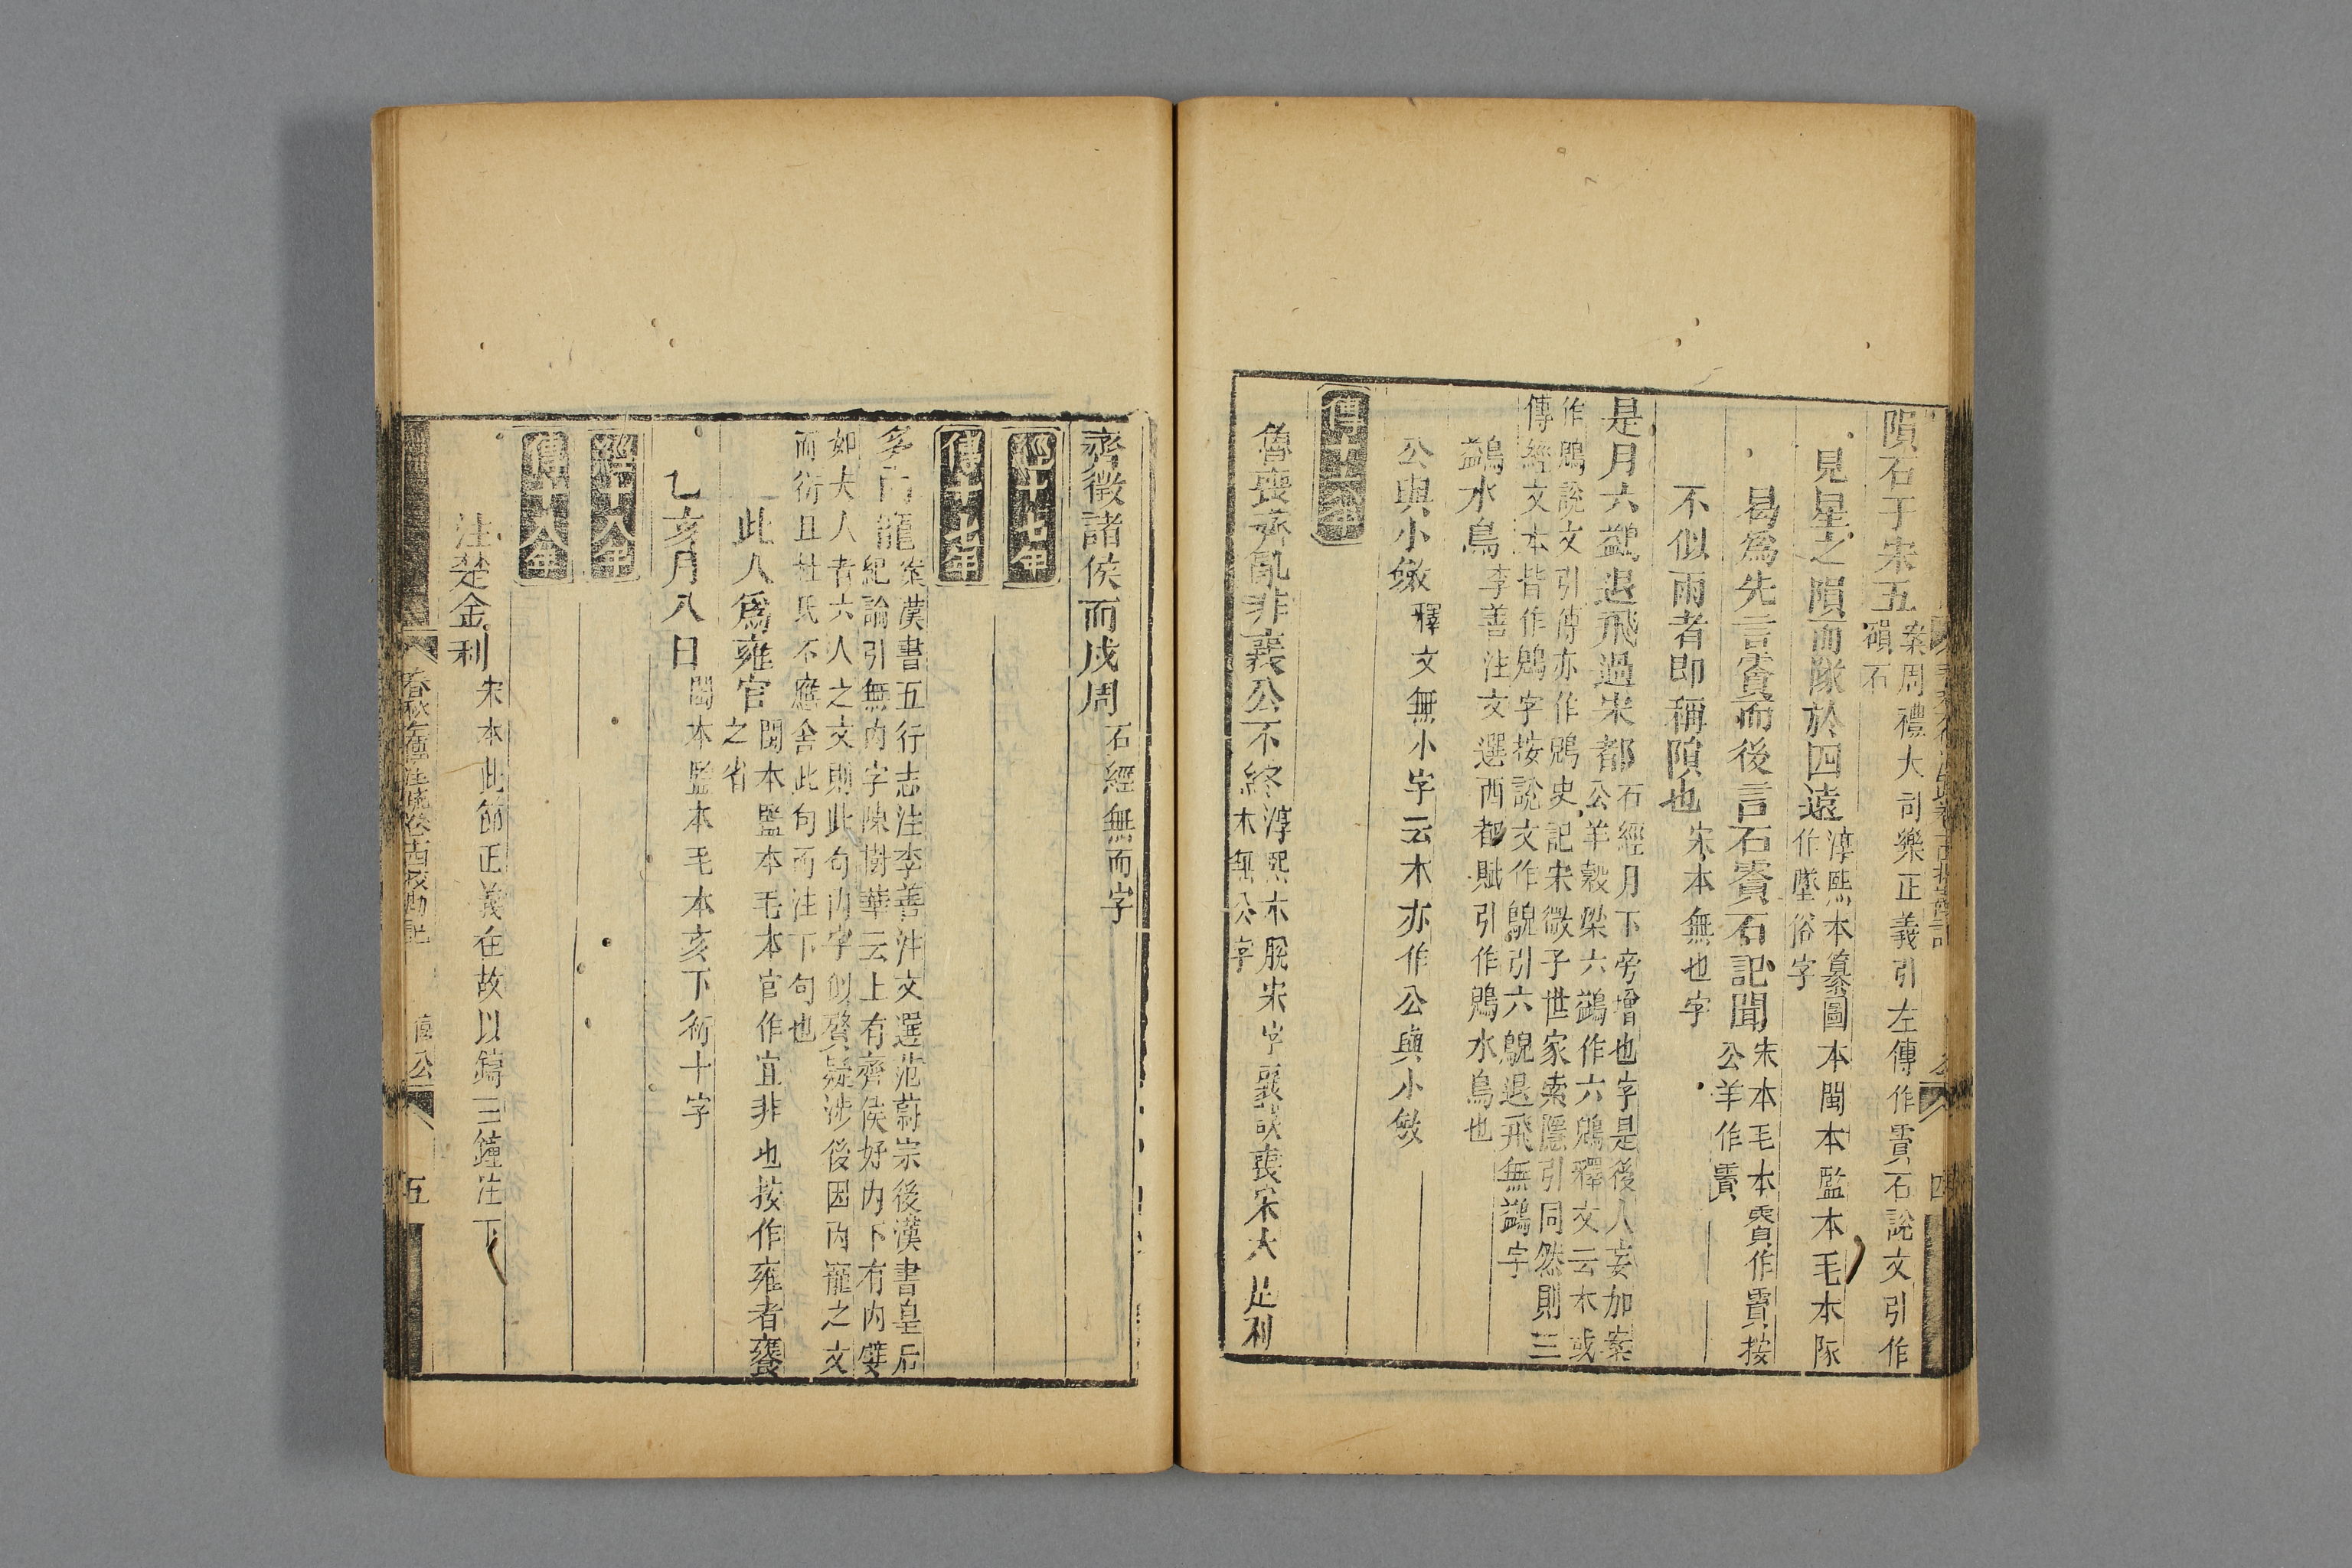 隕石于宋五案周禮大司樂正義引左傳作霣石說文引作磒石
見星之隕而隊於四遠淳熙本纂圖本閩本監本毛本隊作墜俗字
曷為先言霣而後言石霣石記聞宋本毛本霣作賈按公羊作霣
不似雨者即稱隕也宋本無也字
是月六鷁退飛過宋都石經月下旁增也字是後人妄加案公羊穀梁六鷁作六鶂釋文云本或
作鶂說文引傳亦作鶂史記宋微子世家索隱引同然則三傳經文本皆作鶂字按說文作鶃引六鶃退飛無鷁字
鷁水鳥李善注文選西都賦引作鶂水鳥也
公與小斂釋文無小字云本亦作公與小斂
傳十六年
魯喪齊亂非襄公不終淳熙本脫宋字襄誤喪宋大足利本無公字
齊徵諸侯而戍周石經無而字
經十七年
傳十七年
多內寵案漢書五行志注李善注文選范蔚宗後漢書皇后紀論引無內字陳樹華云上有齊侯好內下有內嬖
如夫人者六人之文則此句內字似贅疑涉後因內寵之文而衍且杜氏不應舍此句而注下句也
此人為雍官閩本監本毛本官作宜非也按作雍者饔之省
乙亥月八日閩本監本毛本亥下衍十字
經十八年
傳十八年
注楚金利宋本此節正義在故以鑄三鐘注下
春秋左傳注疏卷十四校勘記 僖公 五